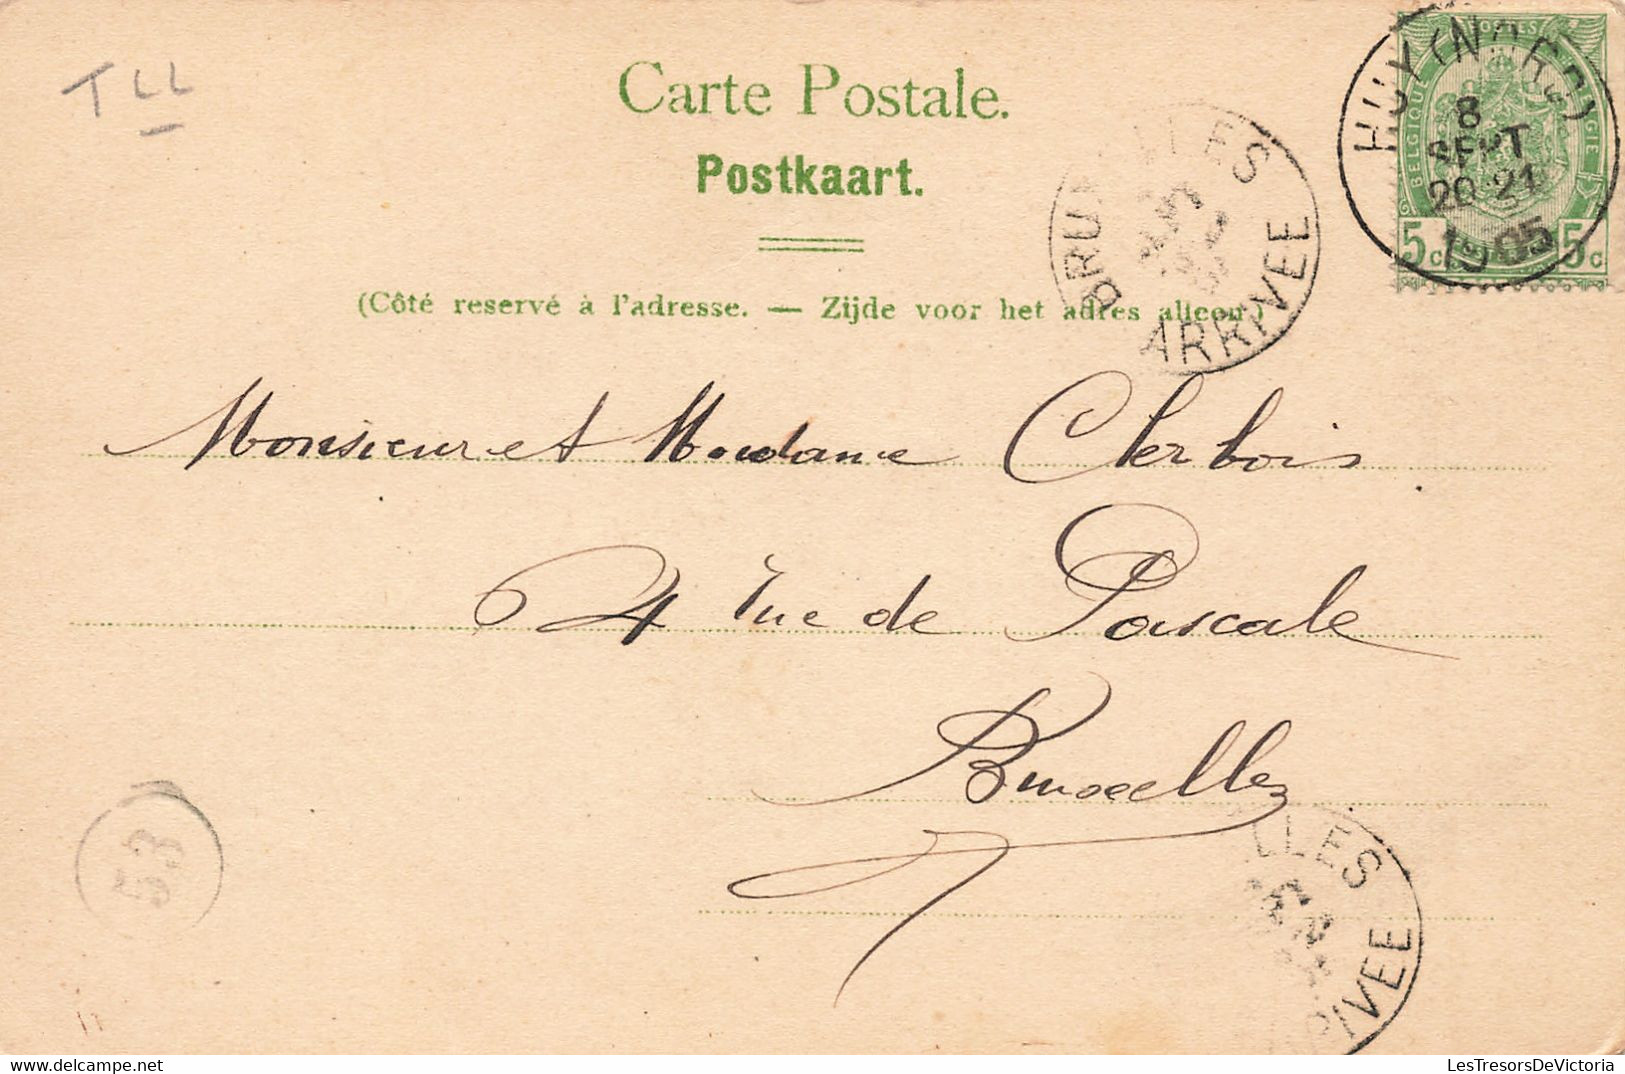 TLL
Carte Postale.
Postkaart.
(Côté reservé à l'adresse. — Zijde voor het adres alleen)
HUY (NORD)
8
SEPT
20-21
1905
POSTES
BELGIQUE
5c 5c
BRUXELLES
ARRIVEE
Monsieur et Madame Clerbois
24 rue de Pascale
Bruxelles
53
LLES
RIVEE
LesTresorsDeVictoria